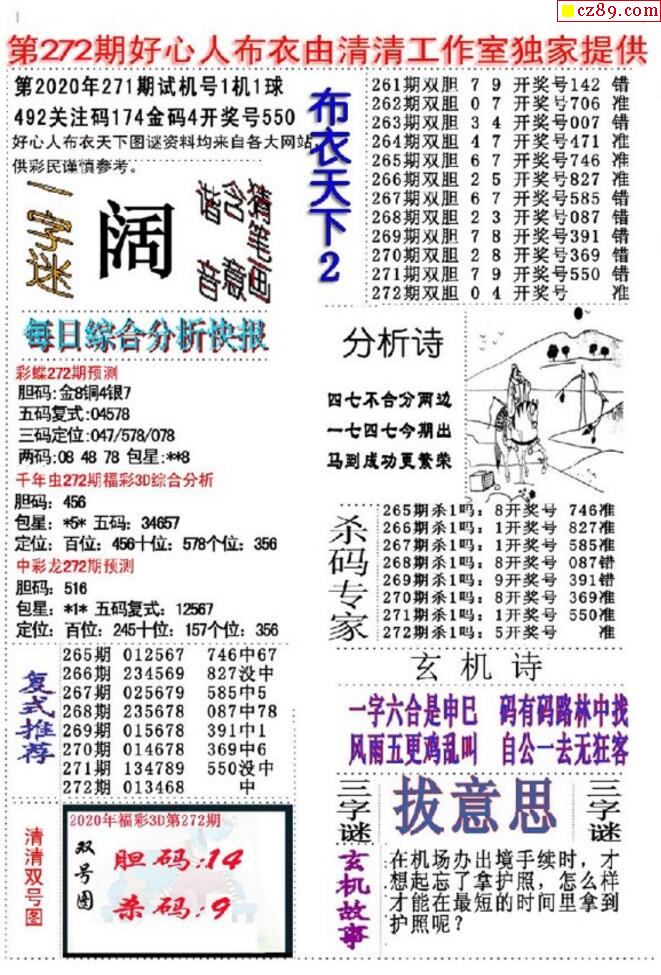 cz89.com
第272期好心人布衣由清清工作室独家提供
第2020年271期试机号1机1球
492关注码174金码4开奖号550
好心人布衣天下图谜资料均来自各大网站,
供彩民谨慎参考。
一字迷
阔
猜笔画
含意
谐音
每日综合分析快报
彩蝶272期预测
胆码:金8铜4银7
五码复式:04578
三码定位:047/578/078
两码:08 48 78 包星:**8
千年虫272期福彩3D综合分析
胆码：456
包星：*5* 五码：34657
定位：百位：456十位：578个位：356
中彩龙272期预测
胆码：516
包星：*1* 五码复式：12567
定位：百位：245十位：157个位：356
复式推荐
265期 012567 746中67
266期 234569 827没中
267期 025679 585中5
268期 235678 087中78
269期 015678 391中1
270期 014678 369中6
271期 134789 550没中
272期 013468 中
清清双号图
2020年福彩3D第272期
双号图
胆码:14
杀码:9
布衣天下2
261期双胆 7 9 开奖号142 错
262期双胆 0 7 开奖号706 准
263期双胆 3 4 开奖号007 错
264期双胆 4 7 开奖号471 准
265期双胆 6 7 开奖号746 准
266期双胆 2 5 开奖号827 准
267期双胆 6 7 开奖号585 错
268期双胆 2 3 开奖号087 错
269期双胆 7 8 开奖号391 错
270期双胆 2 8 开奖号369 错
271期双胆 7 9 开奖号550 错
272期双胆 0 4 开奖号 准
分析诗
四七不合分两边
一七四七今期出
马到成功更繁荣
杀码专家
265期杀1吗：8开奖号 746准
266期杀1吗：1开奖号 827准
267期杀1吗：1开奖号 585准
268期杀1吗：8开奖号 087错
269期杀1吗：9开奖号 391错
270期杀1吗：8开奖号 369准
271期杀1吗：1开奖号 550准
272期杀1吗：5开奖号 准
玄机诗
一字六合是申巳 码有码路林中找
风雨五更鸡乱叫 自公一去无狂客
三字谜
拔意思
三字谜
玄机故事
在机场办出境手续时，才
想起忘了拿护照，怎么样
才能在最短的时间里拿到
护照呢？